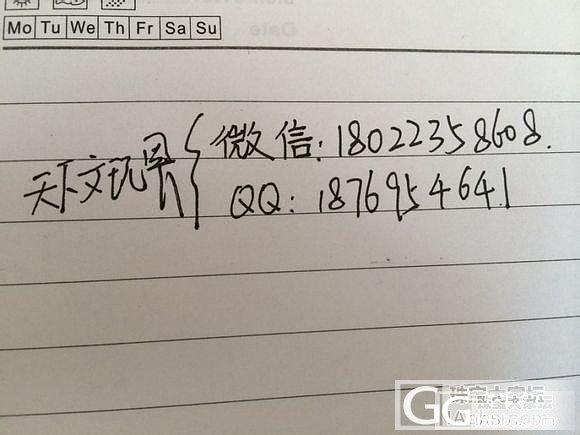 Mo Tu We Th Fr Sa Su
Date
天下文玩界
微信:18022358608.
QQ:1876954641
珠宝大家坛
GG